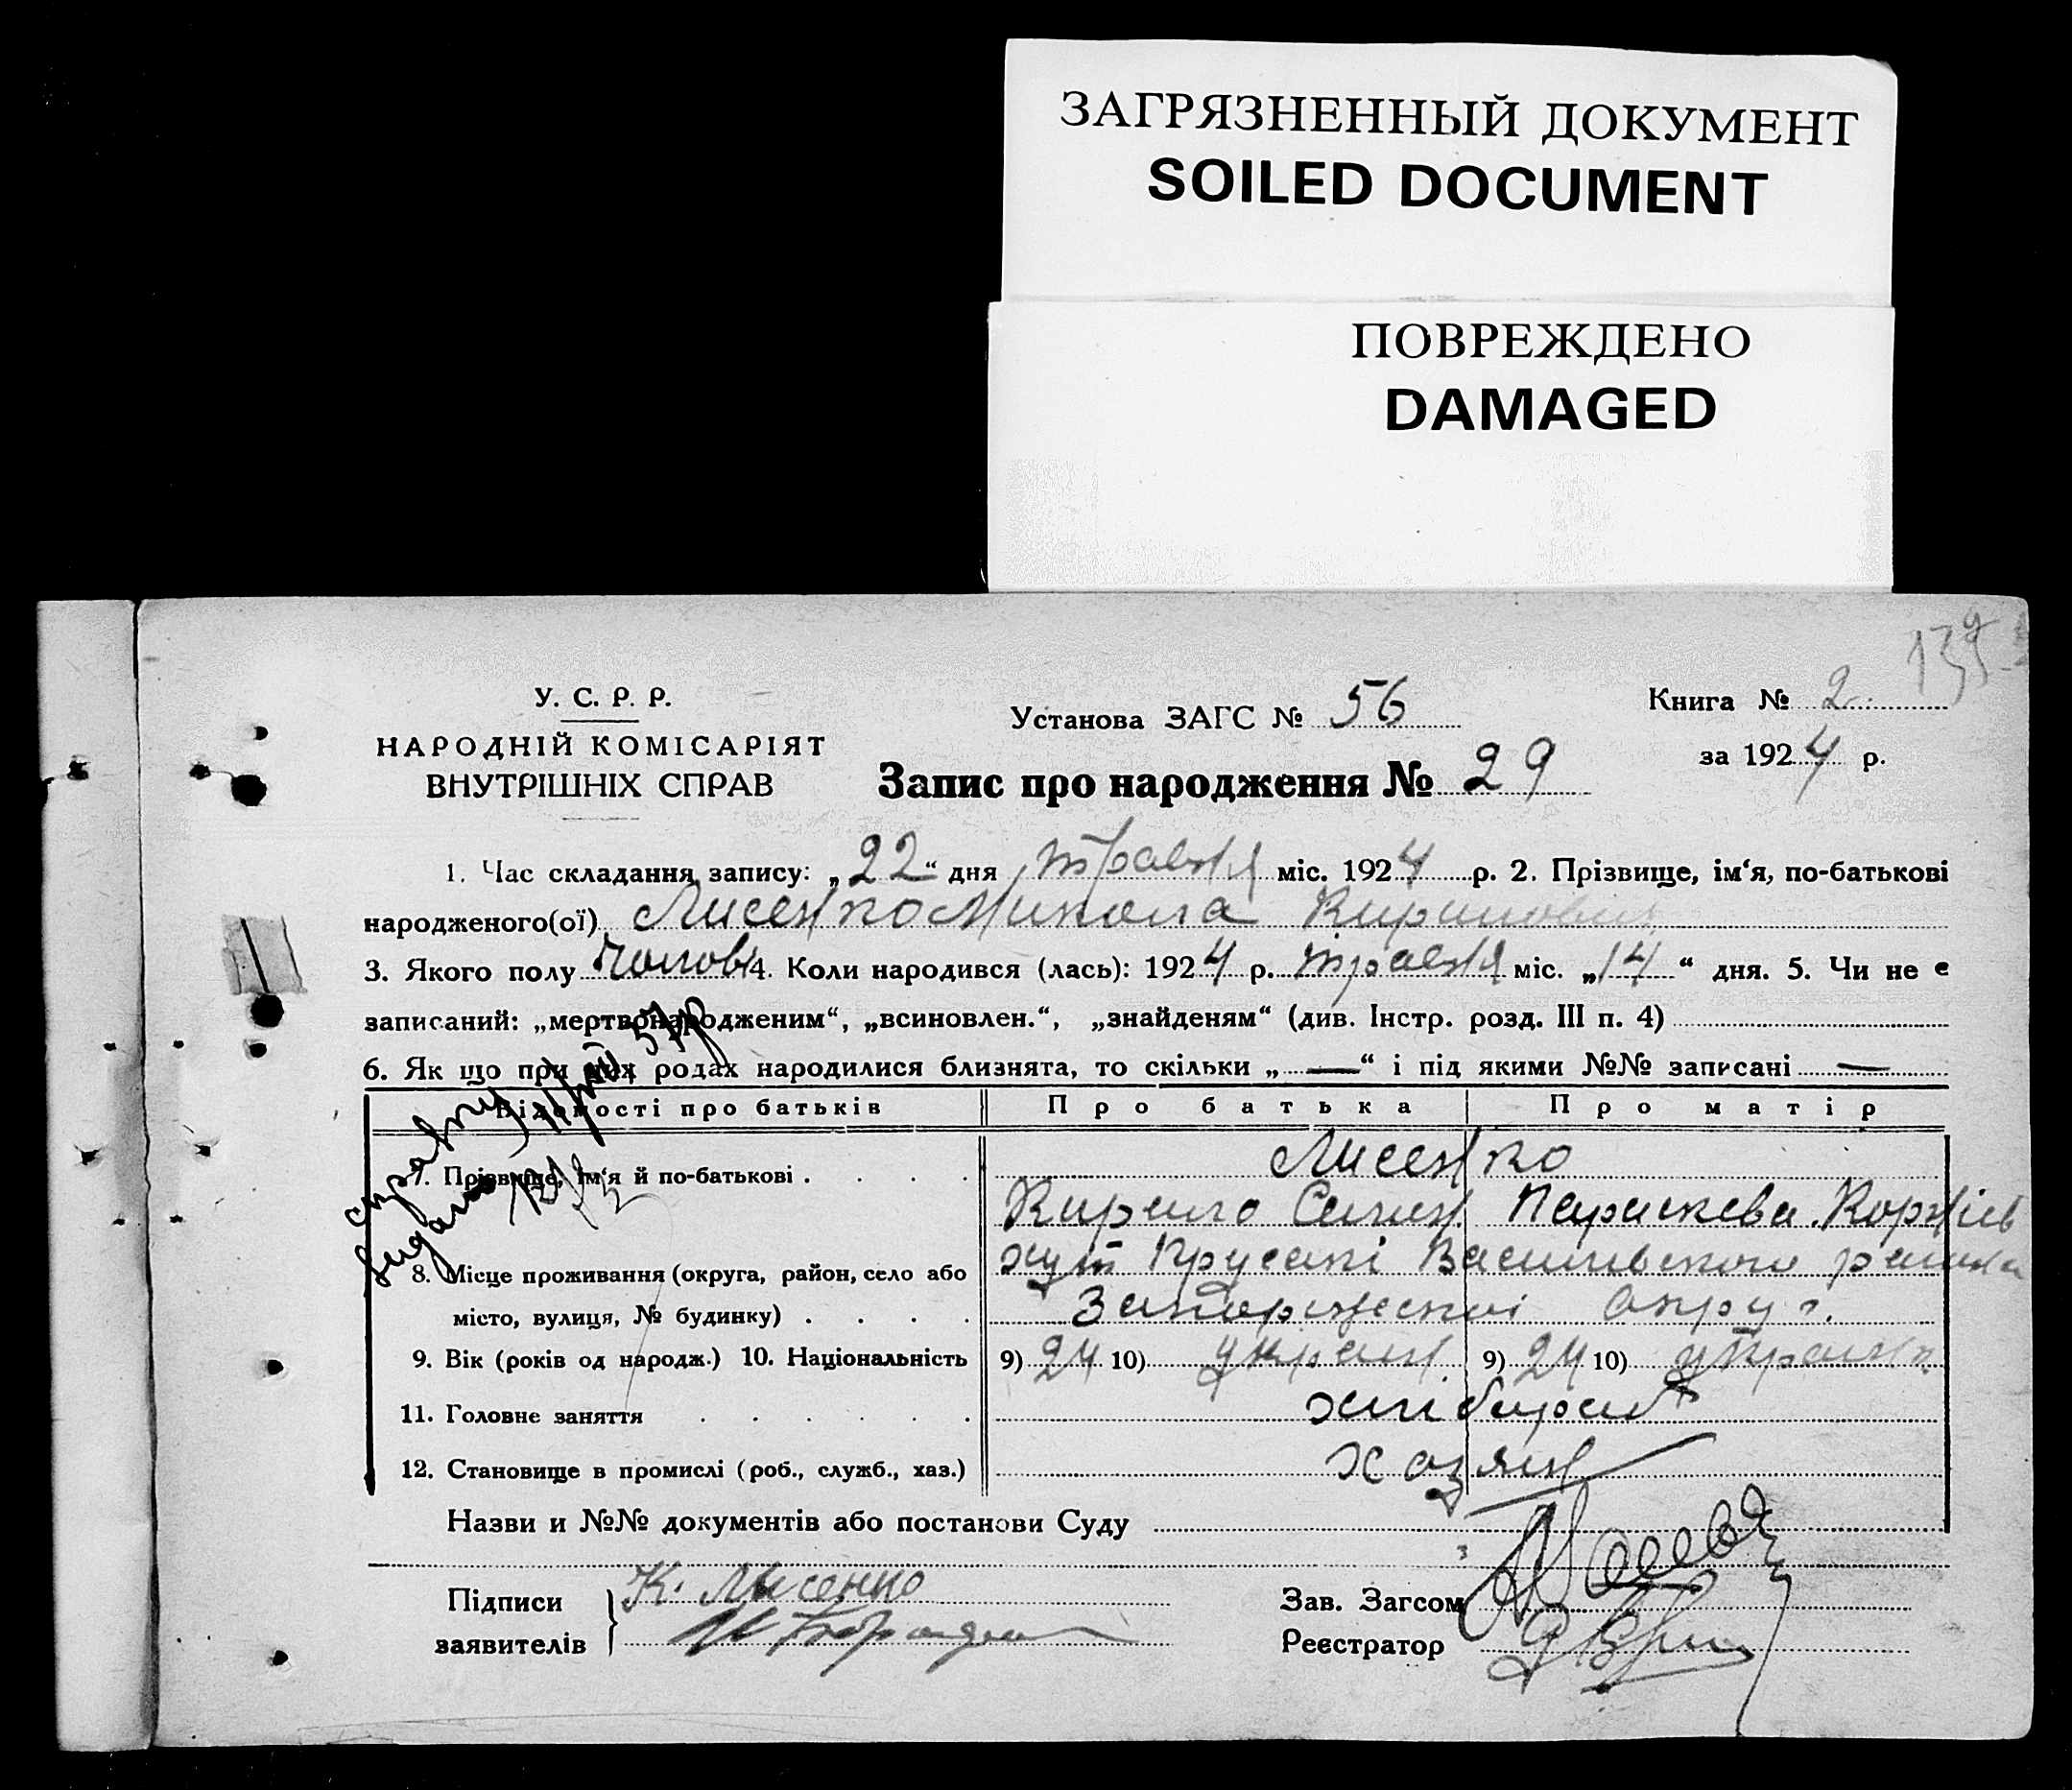 ЗАГРЯЗНЕННЫЙ ДОКУМЕНТ
SOILED DOCUMENT
ПОВРЕЖДЕНО
DAMAGED
У. С. Р. Р.
НАРОДНІЙ КОМІСАРІЯТ
ВНУТРІШНІХ СПРАВ
Установа ЗАГС № 56
Книга № 2
за 1924 р.
Запис про народження № 29
1. Час складання запису: „22“ дня травня міс. 1924 р. 2. Прізвище, ім‘я, по-батькові
народженого(ої) Лисенко Микола Кирилович
3. Якого полу чолов 4. Коли народився (лась): 1924 р. травня міс. „14“ дня. 5. Чи не є
записаний: „мертвонародженим“, „всиновлен.“, „знайденям“ (див. Інстр. розд. III п. 4)
6. Як що при цих родах народилися близнята, то скільки „—“ і під якими №№ записані —
Відомості про батьків Про батька Про матір
7. Прізвище, ім‘я й по-батькові . . . . Лисенко
Кирило Параскева Корніїв
8. Місце проживання (округа, район, село або хут Василівського района
місто, вулиця, № будинку) . . . . Запоріжської округ.
9. Вік (років од народж.) 10. Національність 9) 24 10) украін 9) 24 10) украінк
11. Головне заняття . . . . . . хлібороб
12. Становище в промислі (роб., служб., хаз.) хазяін
Назви и №№ документів або постанови Суду
Підписи
заявителів
К. Лисенко
Зав. Загсом
Реєстратор